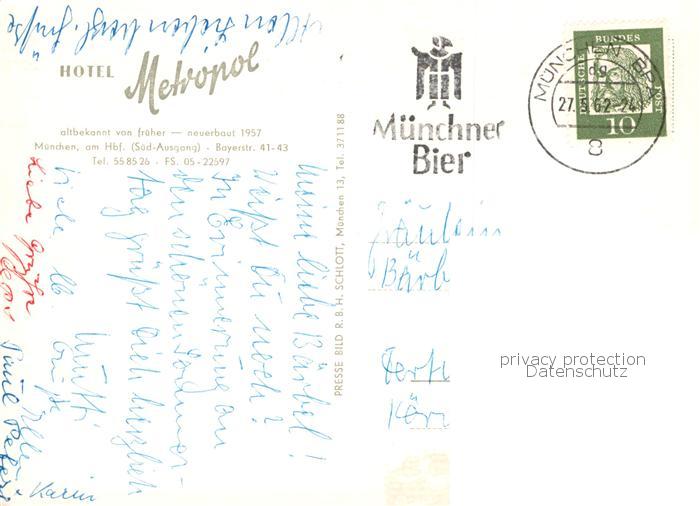 Allen Lieben herzl. Grüße
HOTEL Metropol
altbekannt von früher — neuerbaut 1957
München, am Hbf. (Süd-Ausgang) - Bayerstr. 41-43
Tel. 55 85 26 · FS. 05-22597
Meine liebe Bärbel!
Weißt Du noch?
In Erinnerung an
den schönen
tag grüßt Dich herzlich
Mutti
Viele lb. Grüße
Liebe Grüße
Paul Peter
Karin
PRESSE BILD R. B. H. SCHLOTT, München 13, Tel. 37 11 88
Münchner
Bier
MÜNCHEN BPA
27.
62-24
8
DEUTSCHE BUNDESPOST
10
Fräulein
Bärb
privacy protection
Datenschutz